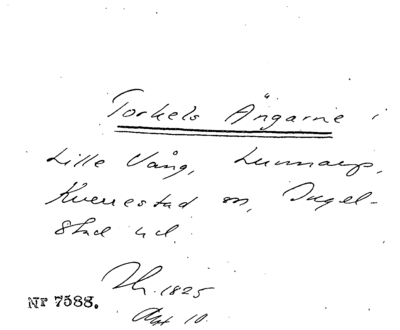 Torkels Ängarne i
Lille Vång, Lunnarp,
Kverrestad sn, Ingel-
stad hd.
Th. 1825
Akt 10.
Nr 7588.